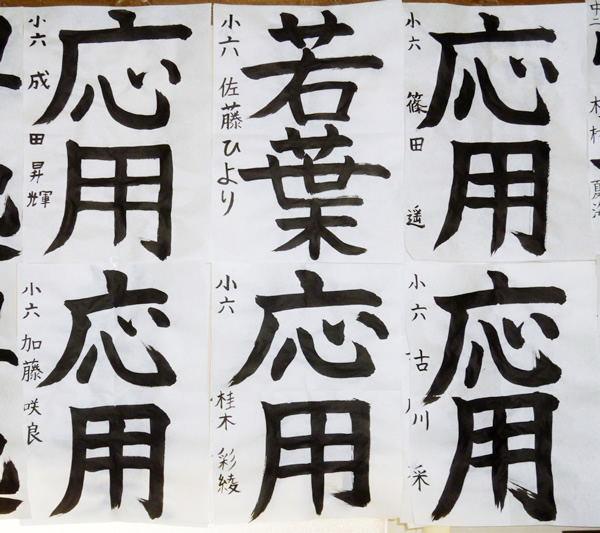 応用
小六 成田昇輝
若葉
小六 佐藤ひより
応用
小六 篠田遥
応用
小六 加藤咲良
応用
小六 桂木彩綾
応用
小六 古川采